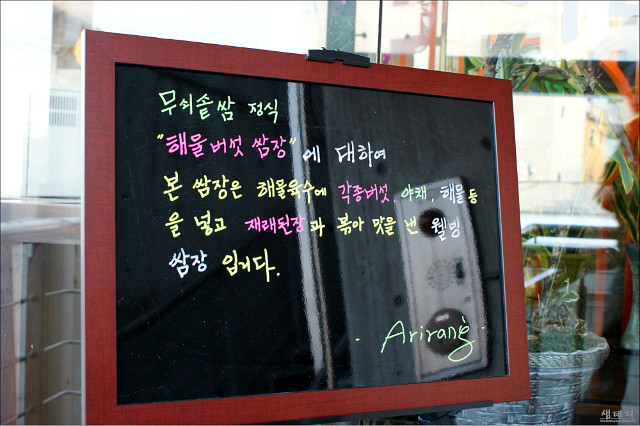 무쇠솥쌈 정식
"해물버섯 쌈장"에 대하여
본 쌈장은 해물육수에 각종버섯, 야채, 해물 등
을 넣고 재래된장과 볶아 맛을 낸 웰빙
쌈장 입니다.
- Arirang -
샐데티